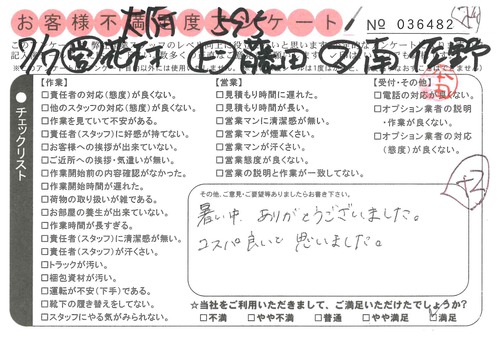 お客様不満足度アンケート!
No 036482
チェックリスト
【作業】
□責任者の対応(態度)が良くない。
□他のスタッフの対応(態度)が良くない。
□作業を見ていて不安がある。
□責任者(スタッフ)に好感が持てない。
□お客様への挨拶が出来ていない。
□ご近所への挨拶・気遣いが無い。
□作業開始前の内容確認がなかった。
□作業開始時間が遅れた。
□荷物の取り扱いが雑である。
□お部屋の養生が出来ていない。
□作業時間が長すぎる。
□責任者(スタッフ)に清潔感が無い。
□責任者(スタッフ)が汗くさい。
□トラックが汚い。
□梱包資材が汚い。
□運転が不安(下手)である。
□靴下の履き替えをしてない。
□スタッフにやる気がみられない。
【営業】
□見積もり時間に遅れた。
□見積もり時間が長い。
□営業マンに清潔感が無い。
□営業マンが煙草くさい。
□営業マンが汗くさい。
□営業態度が良くない。
□営業の説明と作業が一致してない。
【受付・その他】
□電話の対応が良くない。
□オプション業者の説明
・作業が良くない。
□オプション業者の対応
(態度)が良くない。
その他、ご意見・ご要望等ありましたらお書き下さい。
暑い中、ありがとうございました。
コスパ良いと思いました。
☆当社をご利用いただきまして、ご満足いただけたでしょうか?
□不満 □やや不満 □普通 □やや満足 □満足